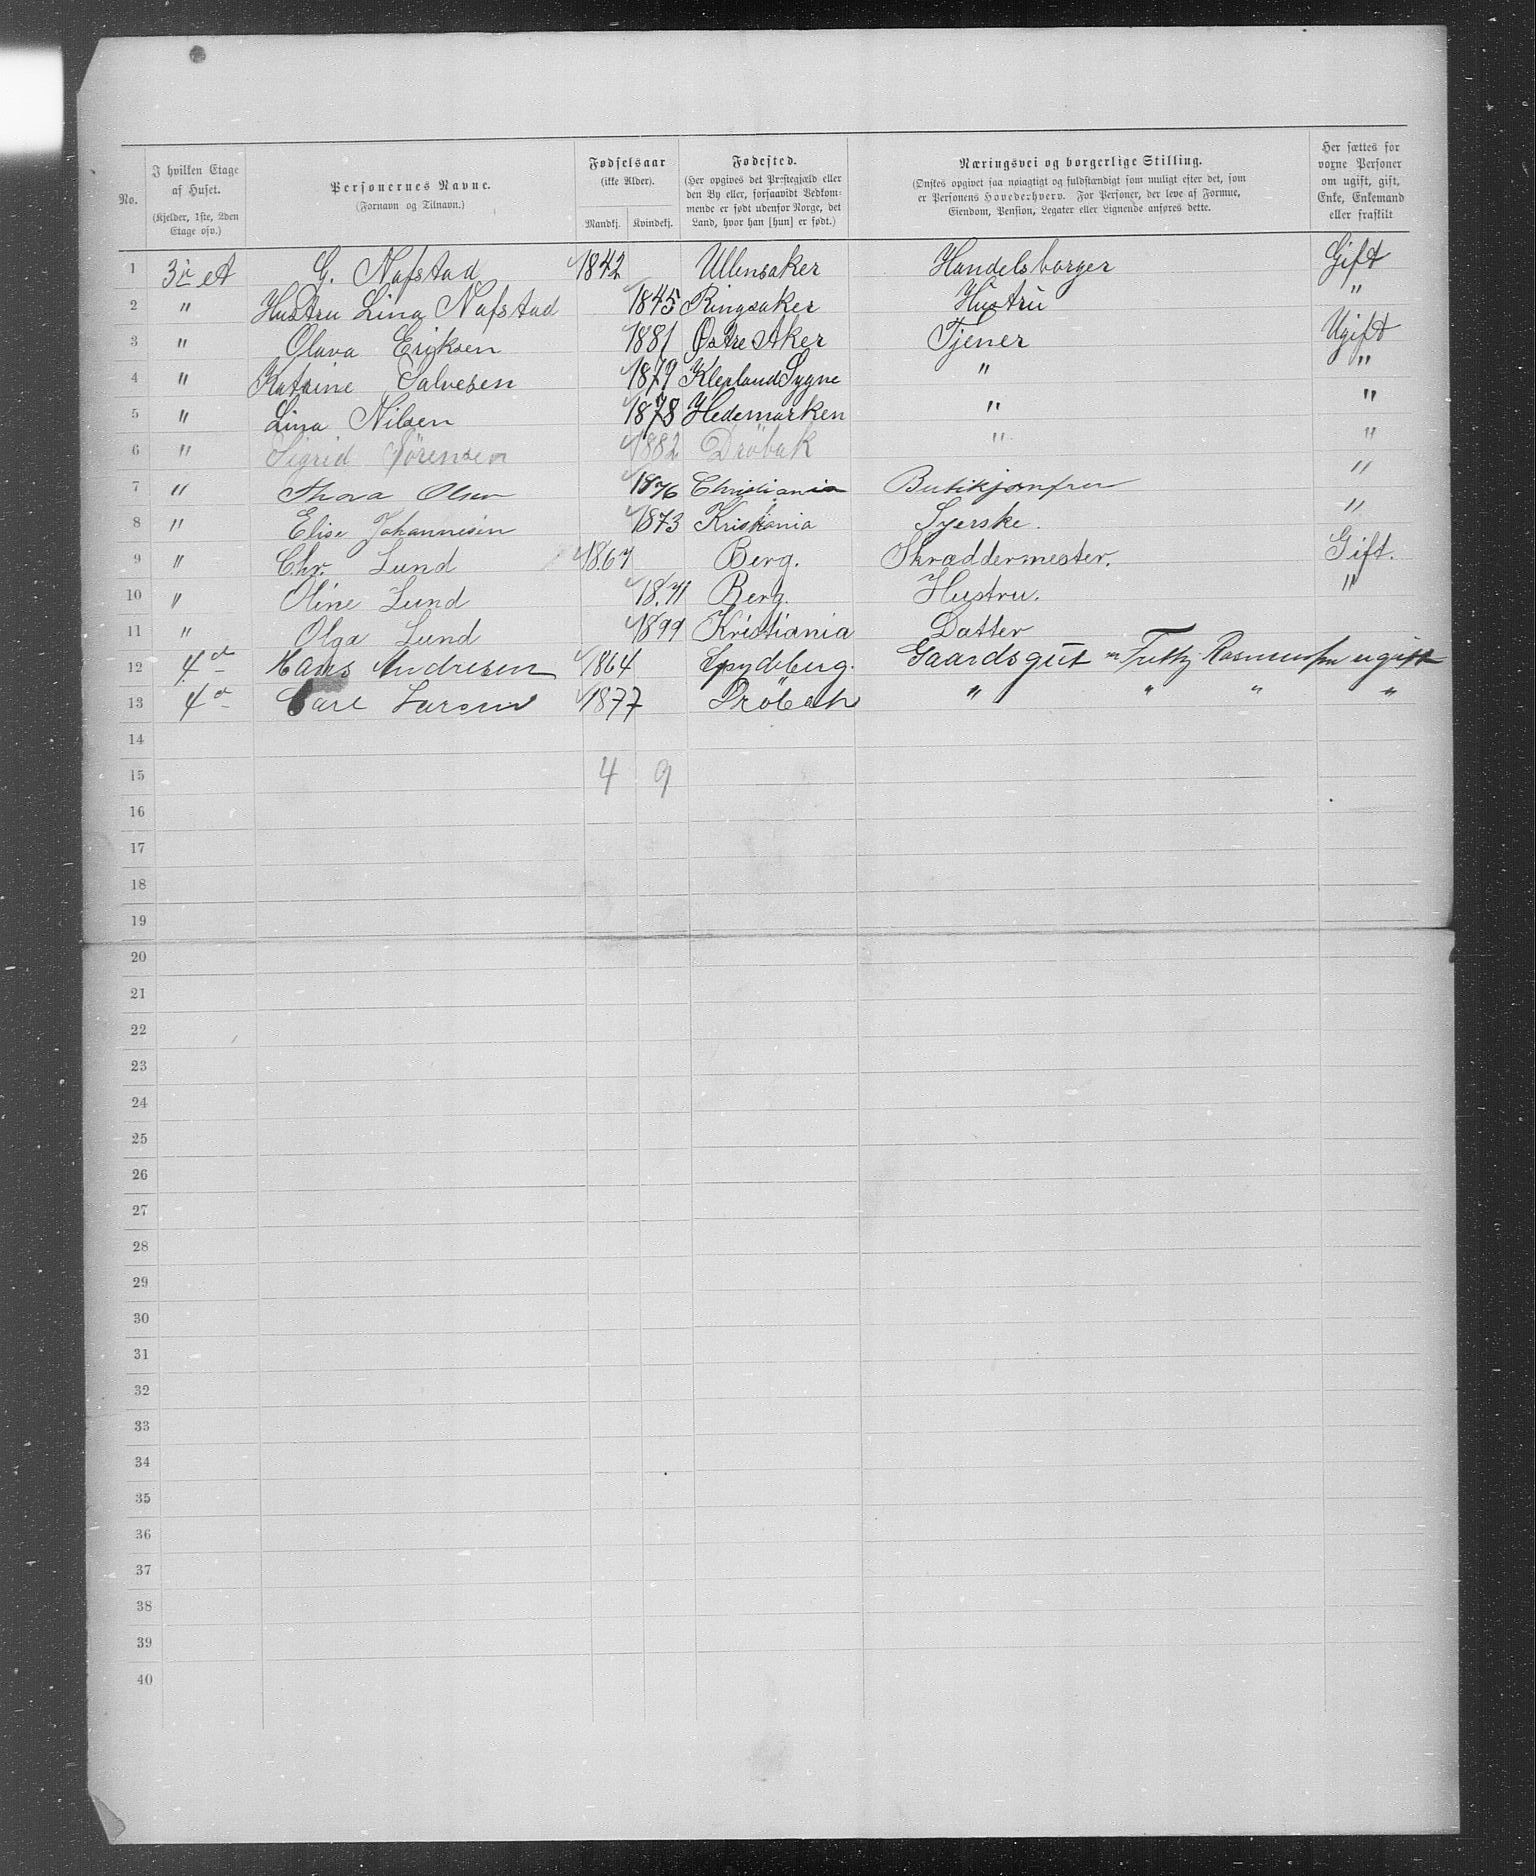 No. | I hvilken Etage af Huset. (Kjelder, 1ste, 2den Etage osv.) | Personernes Navne. (Fornavn og Tilnavn.) | Fødselsaar (ikke Alder). Mandkj. Kvindekj. | Fødested. (Her opgives det Præstegjæld eller den By eller, forsaavidt Vedkommende er født udenfor Norge, det Land, hvor han [hun] er født.) | Næringsvei og borgerlige Stilling. (Ønskes opgivet saa nøiagtigt og fuldstændigt som muligt efter det, som er Personens Hovederhverv. For Personer, der leve af Formue, Eiendom, Pension, Legater eller Lignende anføres dette. | Her sættes for voxne Personer om ugift, gift, Enke, Enkemand eller fraskilt
1 3die et G. Nafstad 1842 Ullensaker Handelsborger Gift
2 " Hustru Lina Nafstad 1845 Ringsaker Hustru "
3 " Olava Eriksen 1881 Østre Aker Tjener Ugift
4 " Katrine Salvesen 1879 Klepland Sygne " "
5 " Lina Nilsen 1878 Hedemarken " "
6 " Sigrid Sørensen 1882 Drøbak " "
7 " Thora Olsen 1876 Christiania Butikjomfru "
8 " Elise Johannesen 1873 Kristiania Syerske. "
9 " Chr. Lund 1867 Berg. Skræddermester. Gift.
10 " Oline Lund 18.71 Berg. Hustru. "
11 " Olga Lund 1899 Kristiania Datter
12 4de Hans Andresen 1864 Spydeberg. Gaardsgut Rasmussen ugift
13 4de Carl Larsen 1877 Dröbak " " " "
14
15 4 9
16
17
18
19
20
21
22
23
24
25
26
27
28
29
30
31
32
33
34
35
36
37
38
39
40